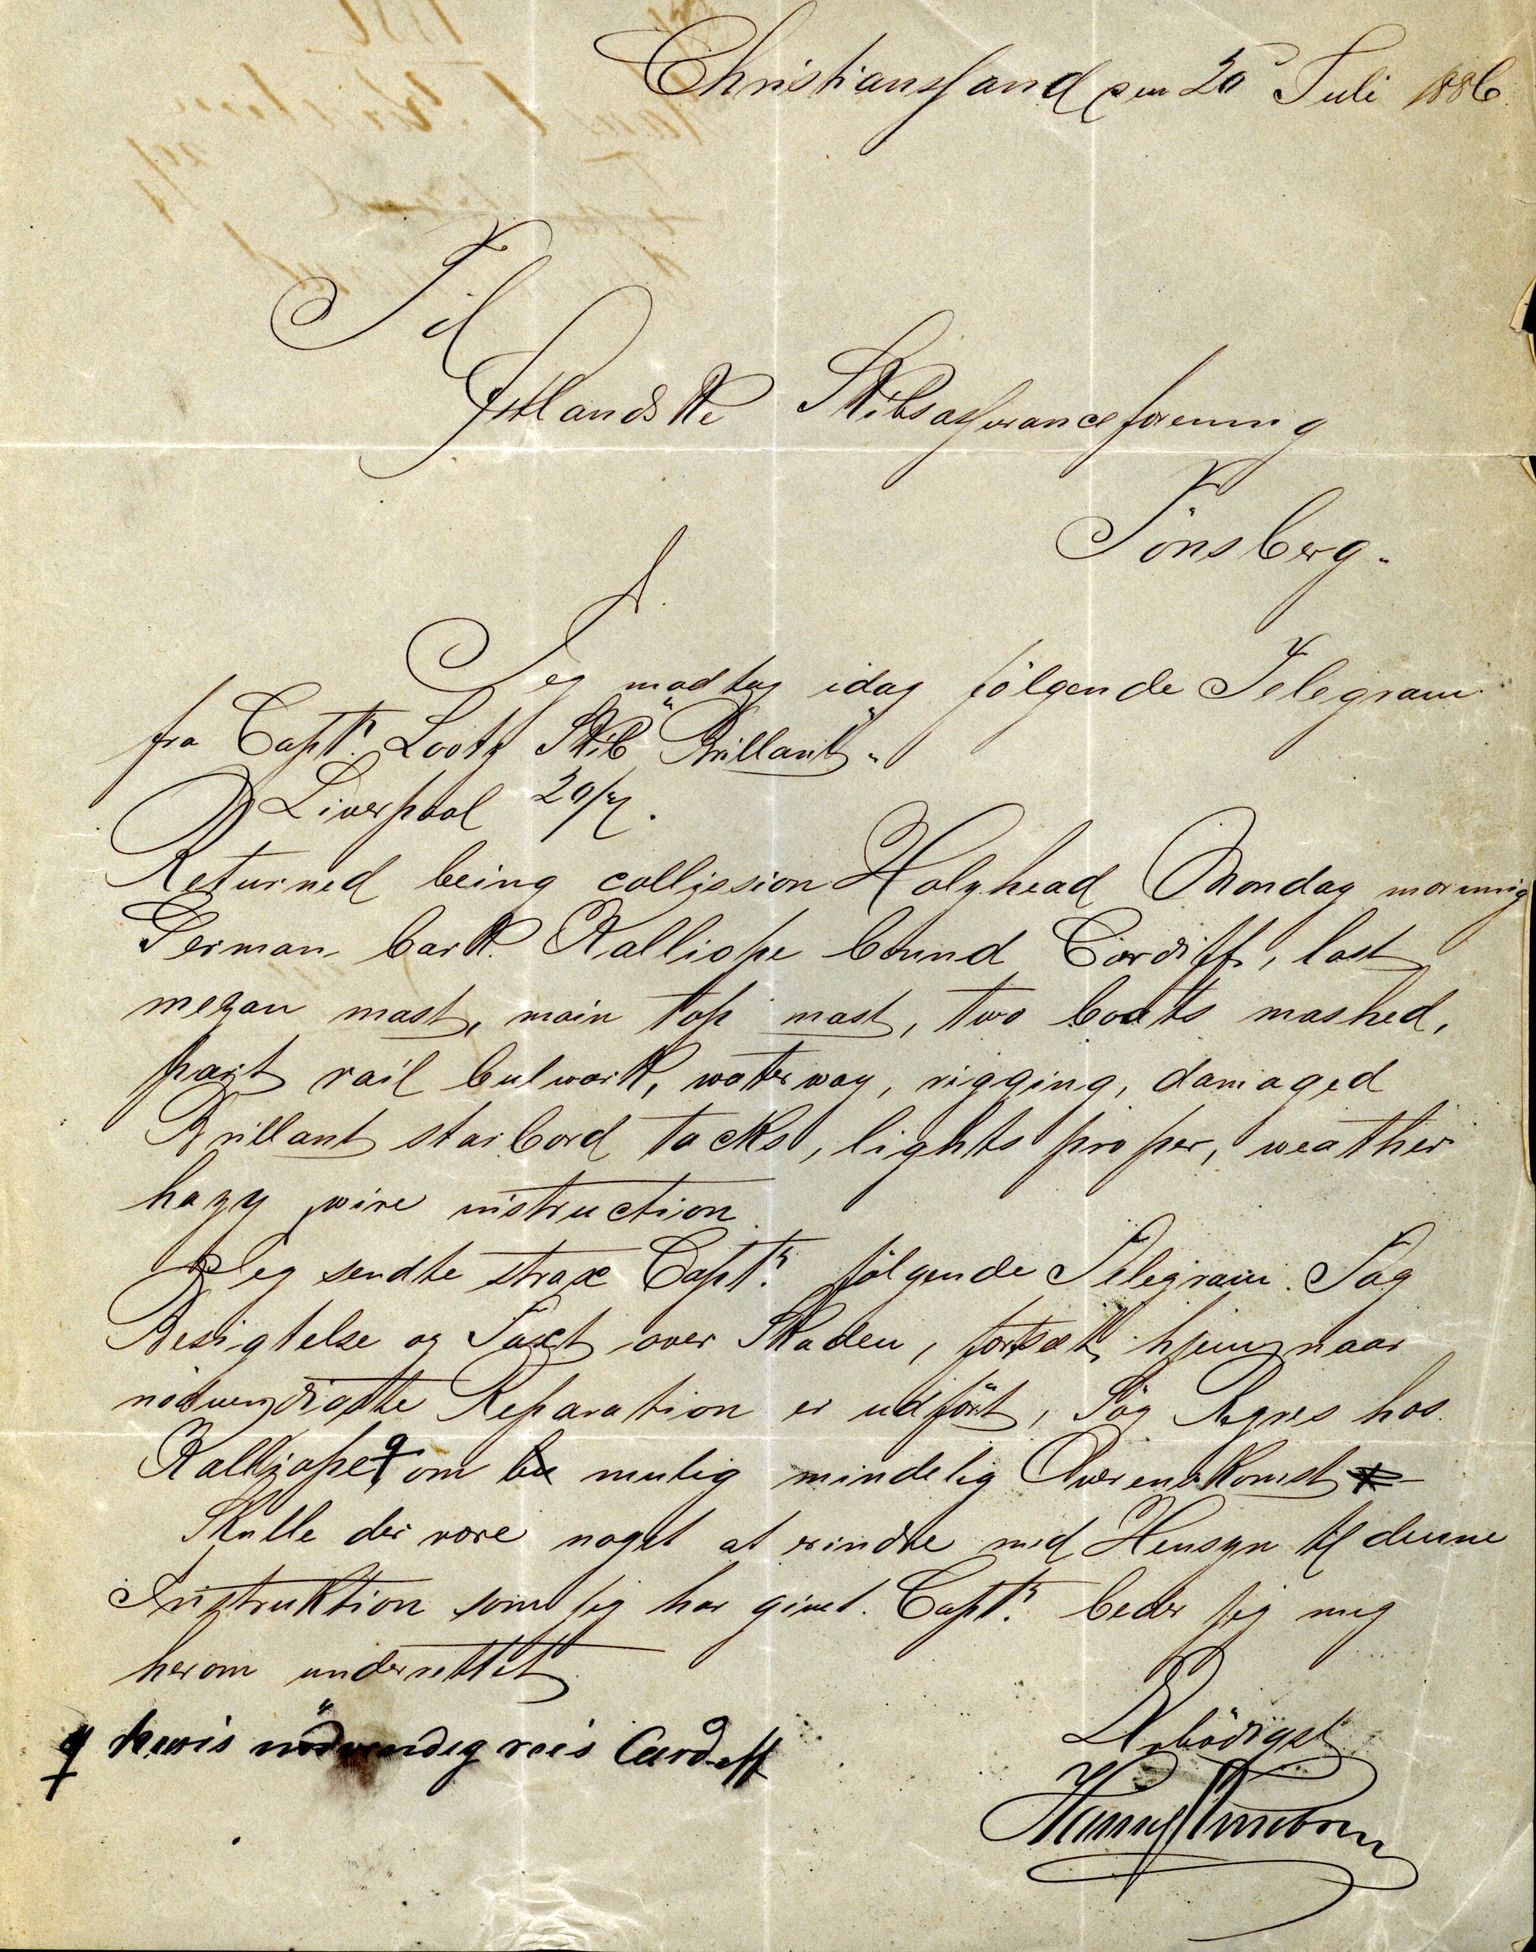 Christianssand den 20 Juli 1886
Til
Jydlandske Skibsassuranceforening
Tönsberg.
S.T.
Jeg modtog idag fölgende Telegram
fra Captn. Lootz Skib "Brillant".
Liverpool 20/7.
Returned being collission Holyhead Monday morning
German bark Kalliope bound Cardiff, lost
mezan mast, main top mast, two boats mashed,
part rail bulwark, waterway, rigging, damaged
Brillant starbord tacks, lights proper, weather
hazy, wire instruction
Jeg sendte strax Captn. fölgende Telegram. Tag
Besigtelse og Taxt over Skaden, fortsæt hjem naar
nödvendigste Reparation er udfört, Sög Regres hos
Kalliope om mulig mindelig Overenskomst
Skulle der være noget at erindre med Hensyn til denne
Instruktion som jeg har givet Captn. beder jeg mig
herom underrettet
Ærbödigst
q hvis nödvendig reis Cardiff